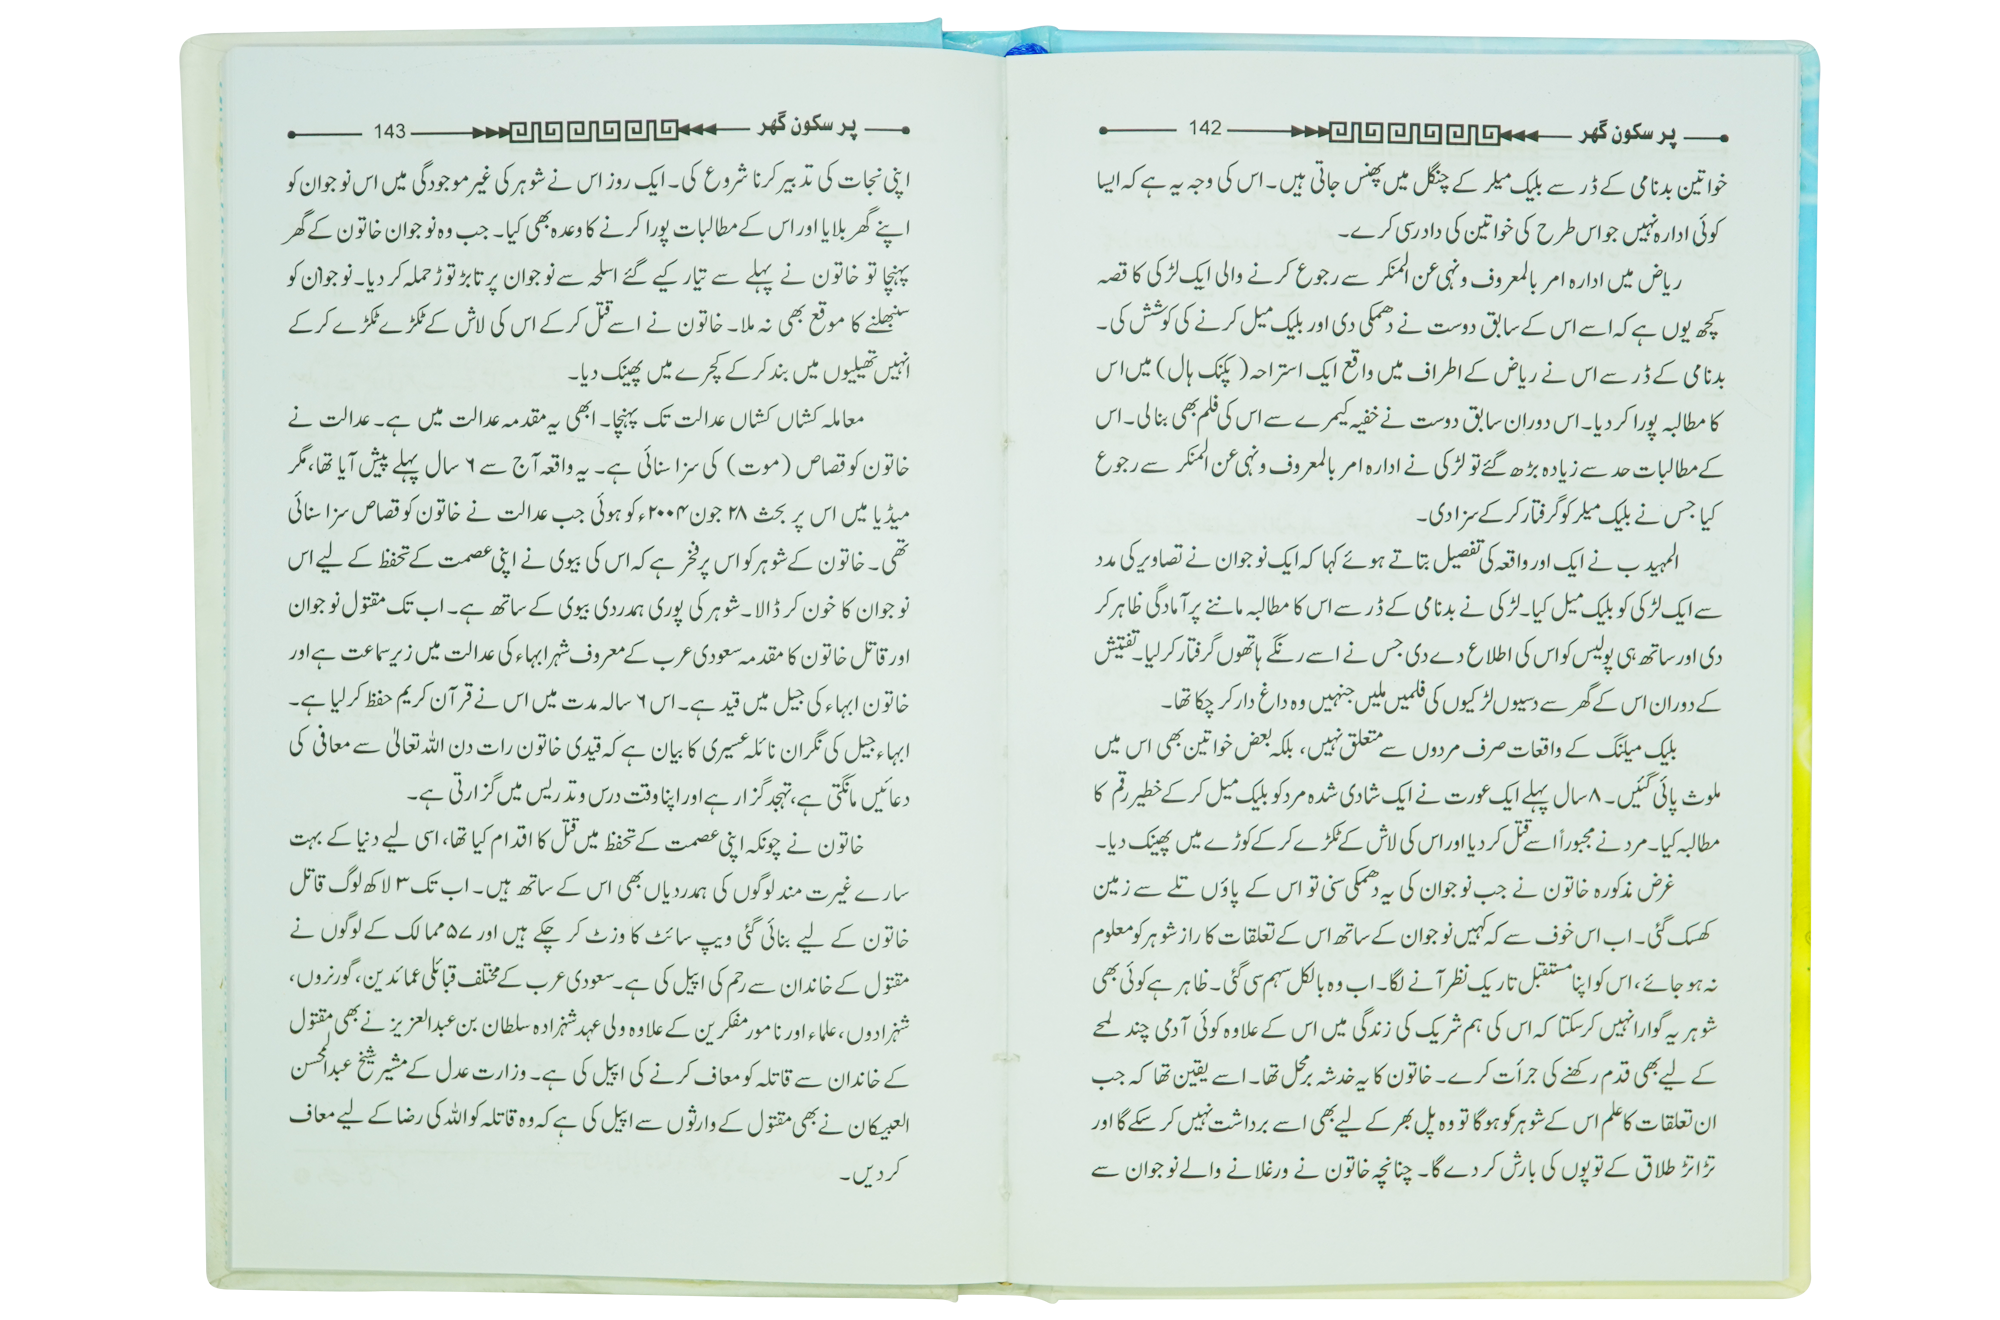 پر سکون گھر 142
خواتین بدنامی کے ڈر سے بلیک میلر کے چنگل میں پھنس جاتی ہیں۔ اس کی وجہ یہ ہے کہ ایسا
کوئی ادارہ نہیں جو اس طرح کی خواتین کی دادرسی کرے۔
ریاض میں ادارہ امر بالمعروف ونہی عن المنکر سے رجوع کرنے والی ایک لڑکی کا قصہ
کچھ یوں ہے کہ اسے اس کے سابق دوست نے دھمکی دی اور بلیک میل کرنے کی کوشش کی۔
بدنامی کے ڈر سے اس نے ریاض کے اطراف میں واقع ایک استراحہ (پکنک ہال) میں اس
کا مطالبہ پورا کر دیا۔ اس دوران سابق دوست نے خفیہ کیمرے سے اس کی فلم بھی بنا لی۔ اس
کے مطالبات حد سے زیادہ بڑھ گئے تو لڑکی نے ادارہ امر بالمعروف ونہی عن المنکر سے رجوع
کیا جس نے بلیک میلر کو گرفتار کر کے سزا دی۔
المہیدب نے ایک اور واقعہ کی تفصیل بتاتے ہوئے کہا کہ ایک نوجوان نے تصاویر کی مدد
سے ایک لڑکی کو بلیک میل کیا۔ لڑکی نے بدنامی کے ڈر سے اس کا مطالبہ ماننے پر آمادگی ظاہر کر
دی اور ساتھ ہی پولیس کو اس کی اطلاع دے دی جس نے اسے رنگے ہاتھوں گرفتار کر لیا۔ تفتیش
کے دوران اس کے گھر سے دسیوں لڑکیوں کی فلمیں ملیں جنہیں وہ داغ دار کر چکا تھا۔
بلیک میلنگ کے واقعات صرف مردوں سے متعلق نہیں، بلکہ بعض خواتین بھی اس میں
ملوث پائی گئیں۔ ۸ سال پہلے ایک عورت نے ایک شادی شدہ مرد کو بلیک میل کر کے خطیر رقم کا
مطالبہ کیا۔ مرد نے مجبوراً اسے قتل کر دیا اور اس کی لاش کے ٹکڑے کر کے کوڑے میں پھینک دیا۔
غرض مذکورہ خاتون نے جب نوجوان کی یہ دھمکی سنی تو اس کے پاؤں تلے سے زمین
کھسک گئی۔ اب اس خوف سے کہ کہیں نوجوان کے ساتھ اس کے تعلقات کا راز شوہر کو معلوم
نہ ہو جائے، اس کو اپنا مستقبل تاریک نظر آنے لگا۔ اب وہ بالکل سہم سی گئی۔ ظاہر ہے کوئی بھی
شوہر یہ گوارا نہیں کر سکتا کہ اس کی ہم شریک کی زندگی میں اس کے علاوہ کوئی آدمی چند لمحے
کے لیے بھی قدم رکھنے کی جرأت کرے۔ خاتون کا یہ خدشہ برمحل تھا۔ اسے یقین تھا کہ جب
ان تعلقات کا علم اس کے شوہر کو ہوگا تو وہ پل بھر کے لیے بھی اسے برداشت نہیں کر سکے گا اور
تڑاتڑ طلاق کے توپوں کی بارش کر دے گا۔ چنانچہ خاتون نے ورغلانے والے نوجوان سے
پر سکون گھر 143
اپنی نجات کی تدبیر کرنا شروع کی۔ ایک روز اس نے شوہر کی غیر موجودگی میں اس نوجوان کو
اپنے گھر بلایا اور اس کے مطالبات پورا کرنے کا وعدہ بھی کیا۔ جب وہ نوجوان خاتون کے گھر
پہنچا تو خاتون نے پہلے سے تیار کیے گئے اسلحہ سے نوجوان پر تابڑ توڑ حملہ کر دیا۔ نوجوان کو
سنبھلنے کا موقع بھی نہ ملا۔ خاتون نے اسے قتل کر کے اس کی لاش کے ٹکڑے ٹکڑے کر کے
انہیں تھیلیوں میں بند کر کے کچرے میں پھینک دیا۔
معاملہ کشاں کشاں عدالت تک پہنچا۔ ابھی یہ مقدمہ عدالت میں ہے۔ عدالت نے
خاتون کو قصاص (موت) کی سزا سنائی ہے۔ یہ واقعہ آج سے ۶ سال پہلے پیش آیا تھا، مگر
میڈیا میں اس پر بحث ۲۸ جون ۲۰۰۴ء کو ہوئی جب عدالت نے خاتون کو قصاص سزا سنائی
تھی۔ خاتون کے شوہر کو اس پر فخر ہے کہ اس کی بیوی نے اپنی عصمت کے تحفظ کے لیے اس
نوجوان کا خون کر ڈالا۔ شوہر کی پوری ہمدردی بیوی کے ساتھ ہے۔ اب تک مقتول نوجوان
اور قاتل خاتون کا مقدمہ سعودی عرب کے معروف شہر ابہاء کی عدالت میں زیر سماعت ہے اور
خاتون ابہاء کی جیل میں قید ہے۔ اس ۶ سالہ مدت میں اس نے قرآن کریم حفظ کر لیا ہے۔
ابہاء جیل کی نگران نائلہ عسیری کا بیان ہے کہ قیدی خاتون رات دن اللہ تعالیٰ سے معافی کی
دعائیں مانگتی ہے، تہجد گزار ہے اور اپنا وقت درس وتدریس میں گزارتی ہے۔
خاتون نے چونکہ اپنی عصمت کے تحفظ میں قتل کا اقدام کیا تھا، اسی لیے دنیا کے بہت
سارے غیرت مند لوگوں کی ہمدردیاں بھی اس کے ساتھ ہیں۔ اب تک ۳ لاکھ لوگ قاتل
خاتون کے لیے بنائی گئی ویب سائٹ کا وزٹ کر چکے ہیں اور ۵۷ ممالک کے لوگوں نے
مقتول کے خاندان سے رحم کی اپیل کی ہے۔ سعودی عرب کے مختلف قبائلی عمائدین، گورنروں،
شہزادوں، علماء اور نامور مفکرین کے علاوہ ولی عہد شہزادہ سلطان بن عبدالعزیز نے بھی مقتول
کے خاندان سے قاتلہ کو معاف کرنے کی اپیل کی ہے۔ وزارت عدل کے مشیر شیخ عبدالمحسن
العبیکان نے بھی مقتول کے وارثوں سے اپیل کی ہے کہ وہ قاتلہ کو اللہ کی رضا کے لیے معاف
کر دیں۔